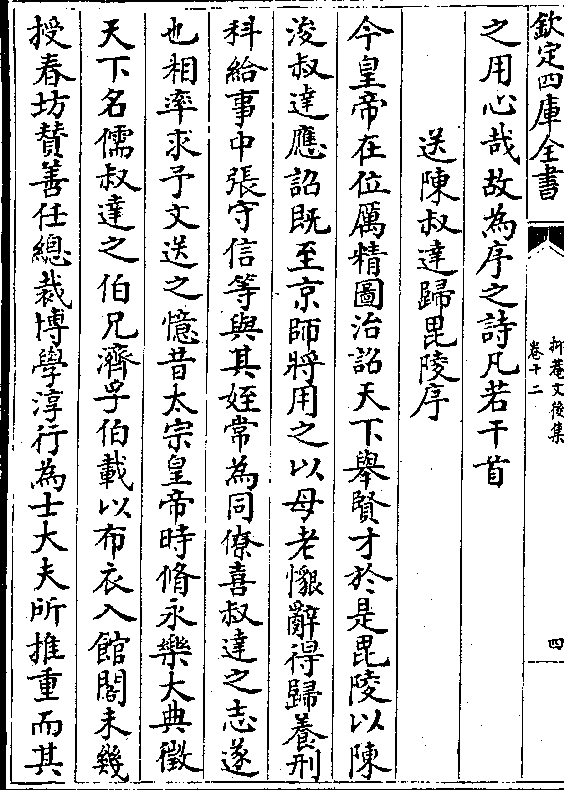 欽定四庫全書
抑菴文後集
卷十二
四
之用心哉故為序之詩凡若干首
送陳叔達歸毘陵序
今皇帝在位厲精圖治詔天下舉賢才於是毘陵以陳
浚叔達應詔既至京師將用之以母老懇辭得歸養刑
科給事中張守信等與其姪常為同僚喜叔達之志遂
也相率求予文送之憶昔太宗皇帝時脩永樂大典徵
天下名儒叔達之伯兄濟孚伯載以布衣入館閣未幾
授春坊賛善任總裁博學淳行為士大夫所推重而其